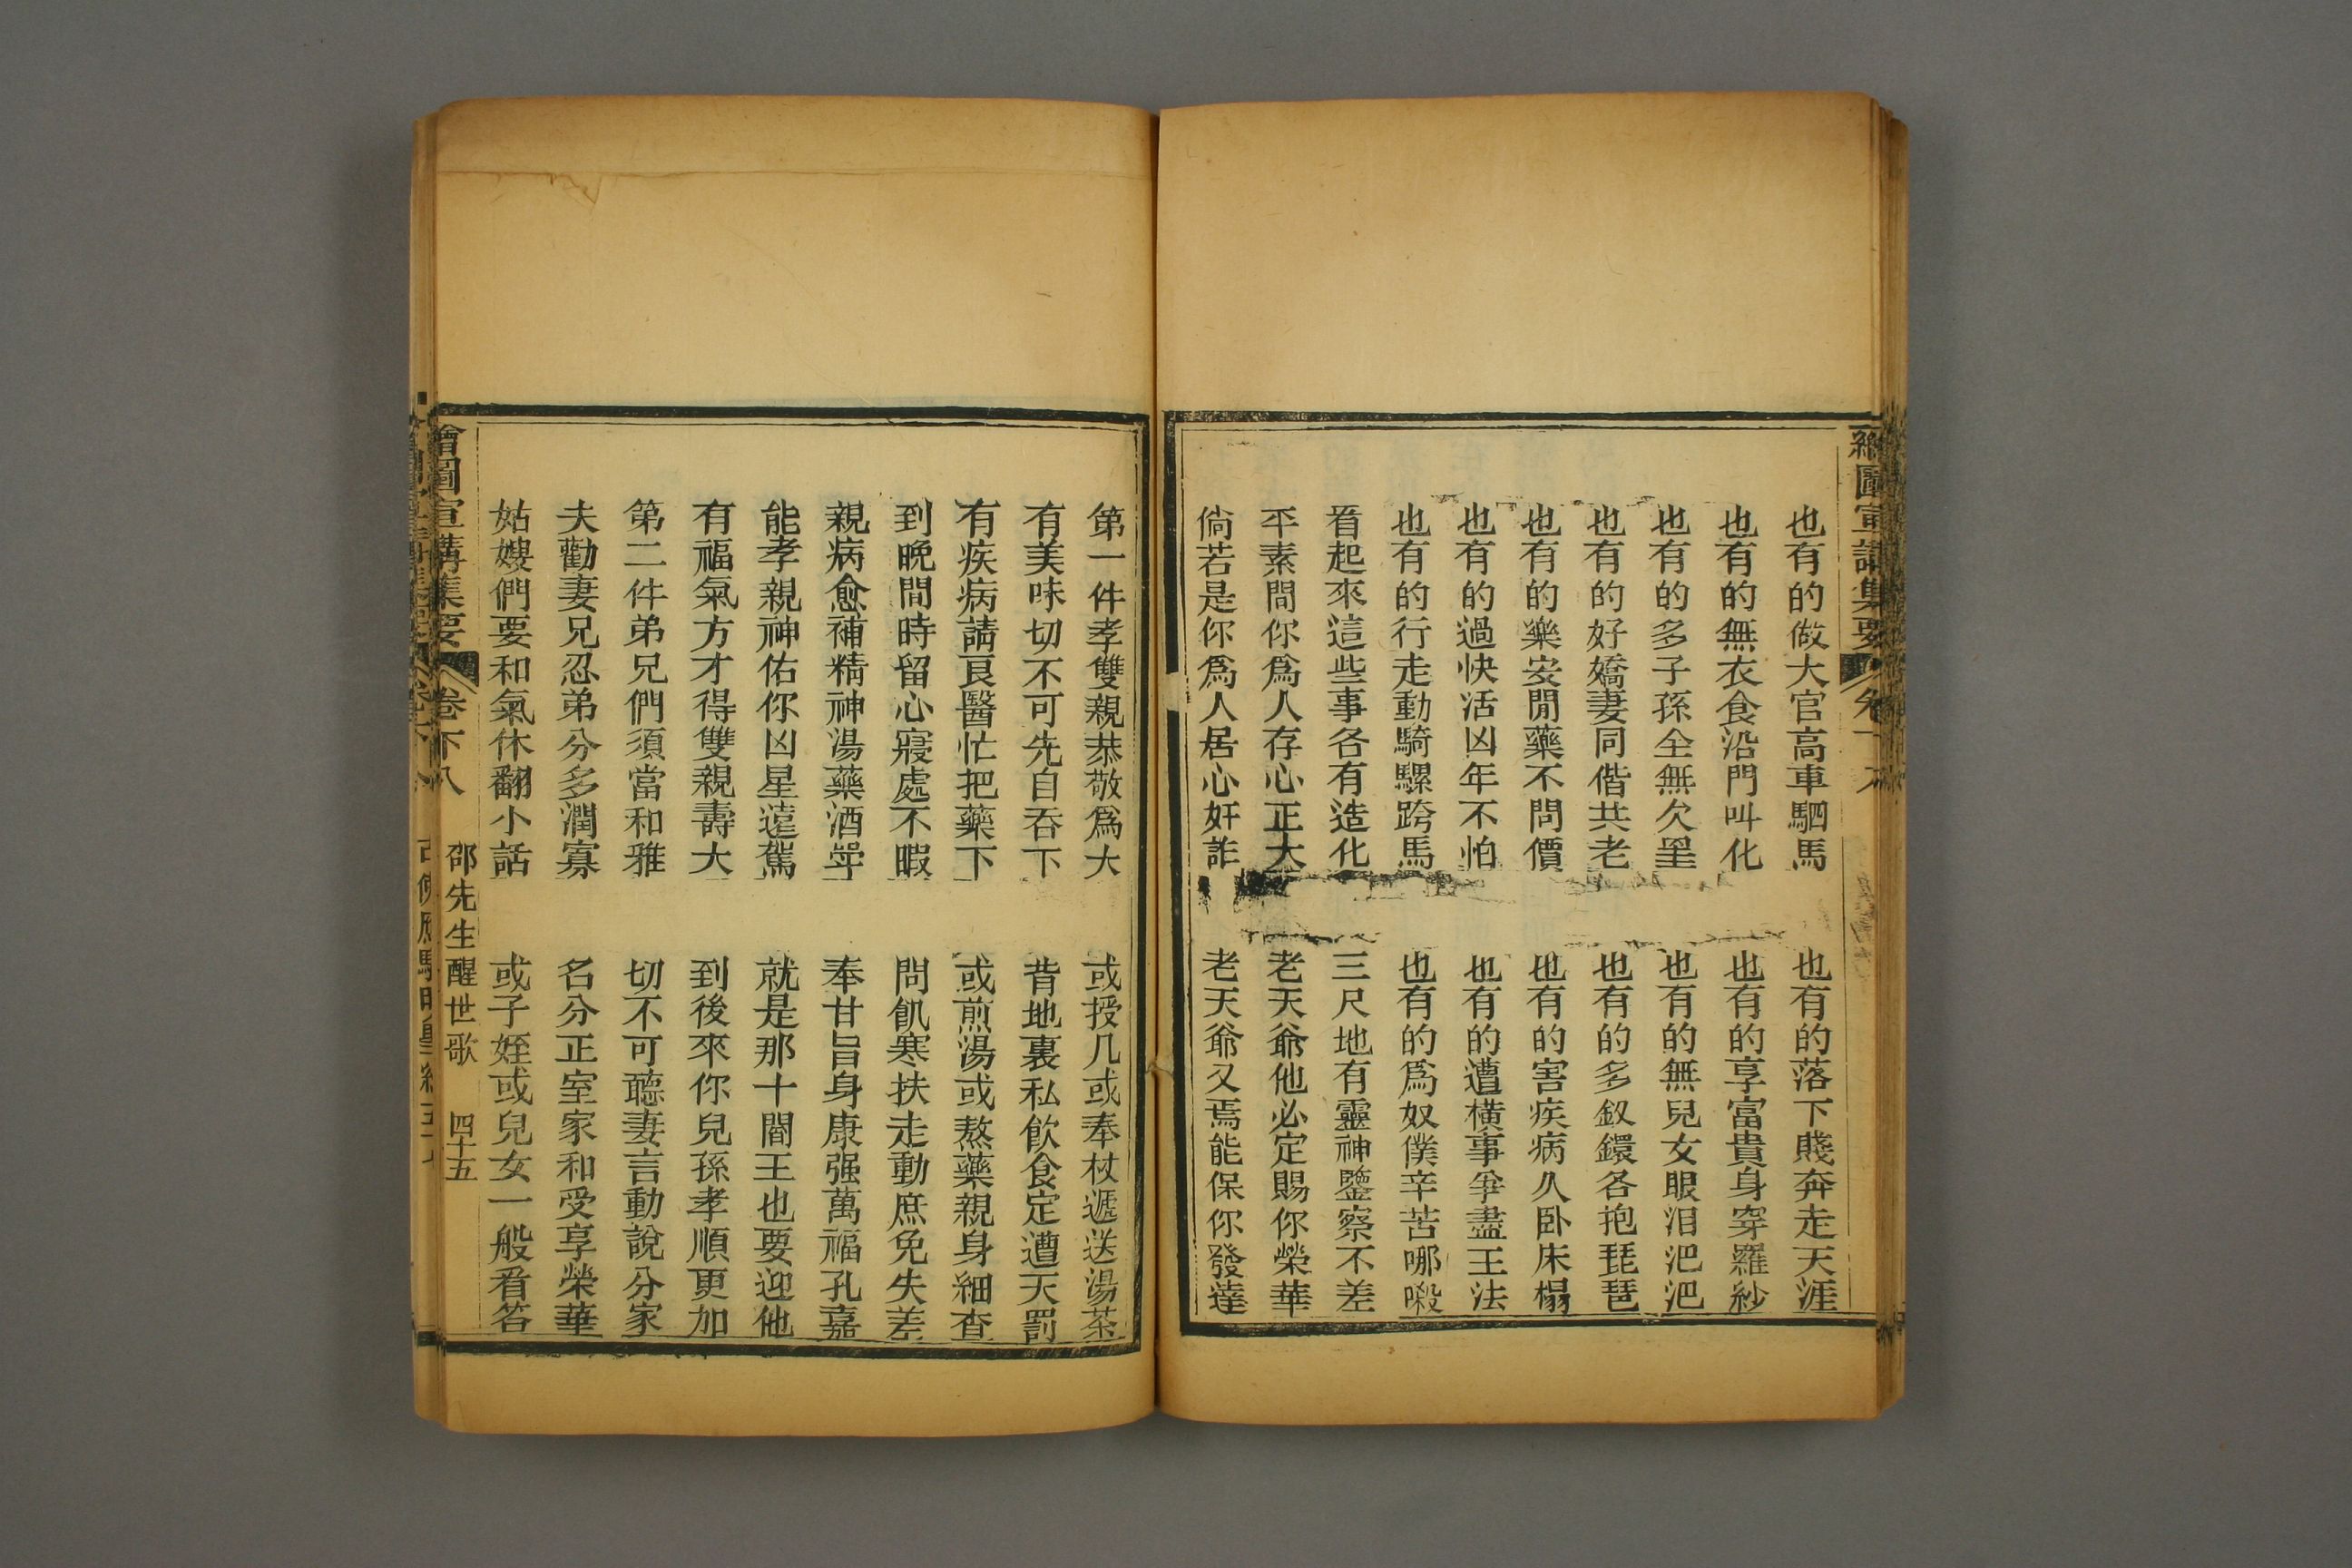 繪圖宣講集要
也有的做大官高車駟馬　也有的落下賤奔走天涯
也有的無衣食沿門叫化　也有的享富貴身穿羅紗
也有的多子孫全無欠呈　也有的無兒女眼泪浥浥
也有的好嬌妻同偕共老　也有的多釵鐶各抱琵琶
也有的樂安閒藥不問價　也有的害疾病久卧床榻
也有的過快活凶年不怕　也有的遭橫事爭盡王法
也有的行走動騎騾跨馬　也有的爲奴僕辛苦哪㗿
看起來這些事各有造化　三尺地有靈神鑒察不差
平素間你爲人存心正大　老天爺他必定賜你榮華
倘若是你爲人居心奸詐　老天爺又焉能保你發達
第一件孝雙親恭敬爲大　或授几或奉杖遞送湯茶
有美味切不可先自吞下　背地裏私飲食定遭天罰
有疾病請良醫忙把藥下　或煎湯或熬藥親身細查
到晚間時留心寢處不暇　問飢寒扶走動庶免失差
親病愈補精神湯藥酒斝　奉甘旨身康强萬福孔嘉
能孝親神佑你凶星遠駕　就是那十閻王也要迎他
有福氣方才得雙親壽大　到後來你兒孫孝順更加
第二件弟兄們須當和雅　切不可聽妻言動說分家
夫勸妻兄忍弟分多潤寡　名分正室家和受享榮華
姑嫂們要和氣休翻小話　或子姪或兒女一般看答
繪圖宣講集要　卷下八　邵先生醒世歌　四十五